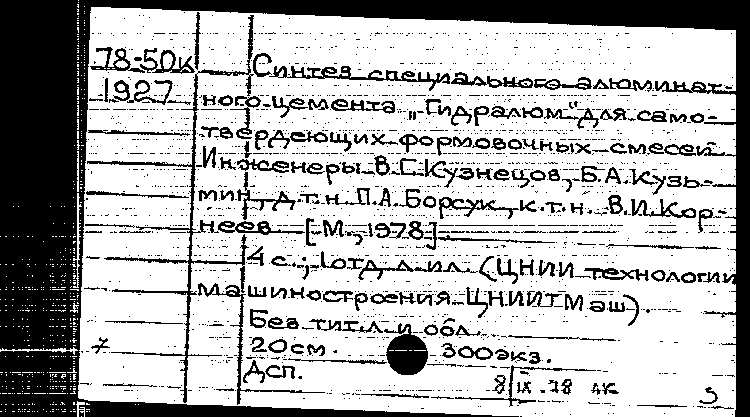 78-50к Синтез специального алюминат-
1927 ного цемента „Гидралюм" для само-
твердеющих формовочных смесей
Инженеры В.Г. Кузнецов, Б.А. Кузь-
мин, д.т.н. П.А. Борсук, к.т.н. В.И. Кор-
неев [М., 1978].
4 с.; 1 отд. л. ил. (ЦНИИ технологии
машиностроения ЦНИИТМаш).
Без тит. л. и обл.
20 см. 300 экз.
Дсп.
8/IX.78